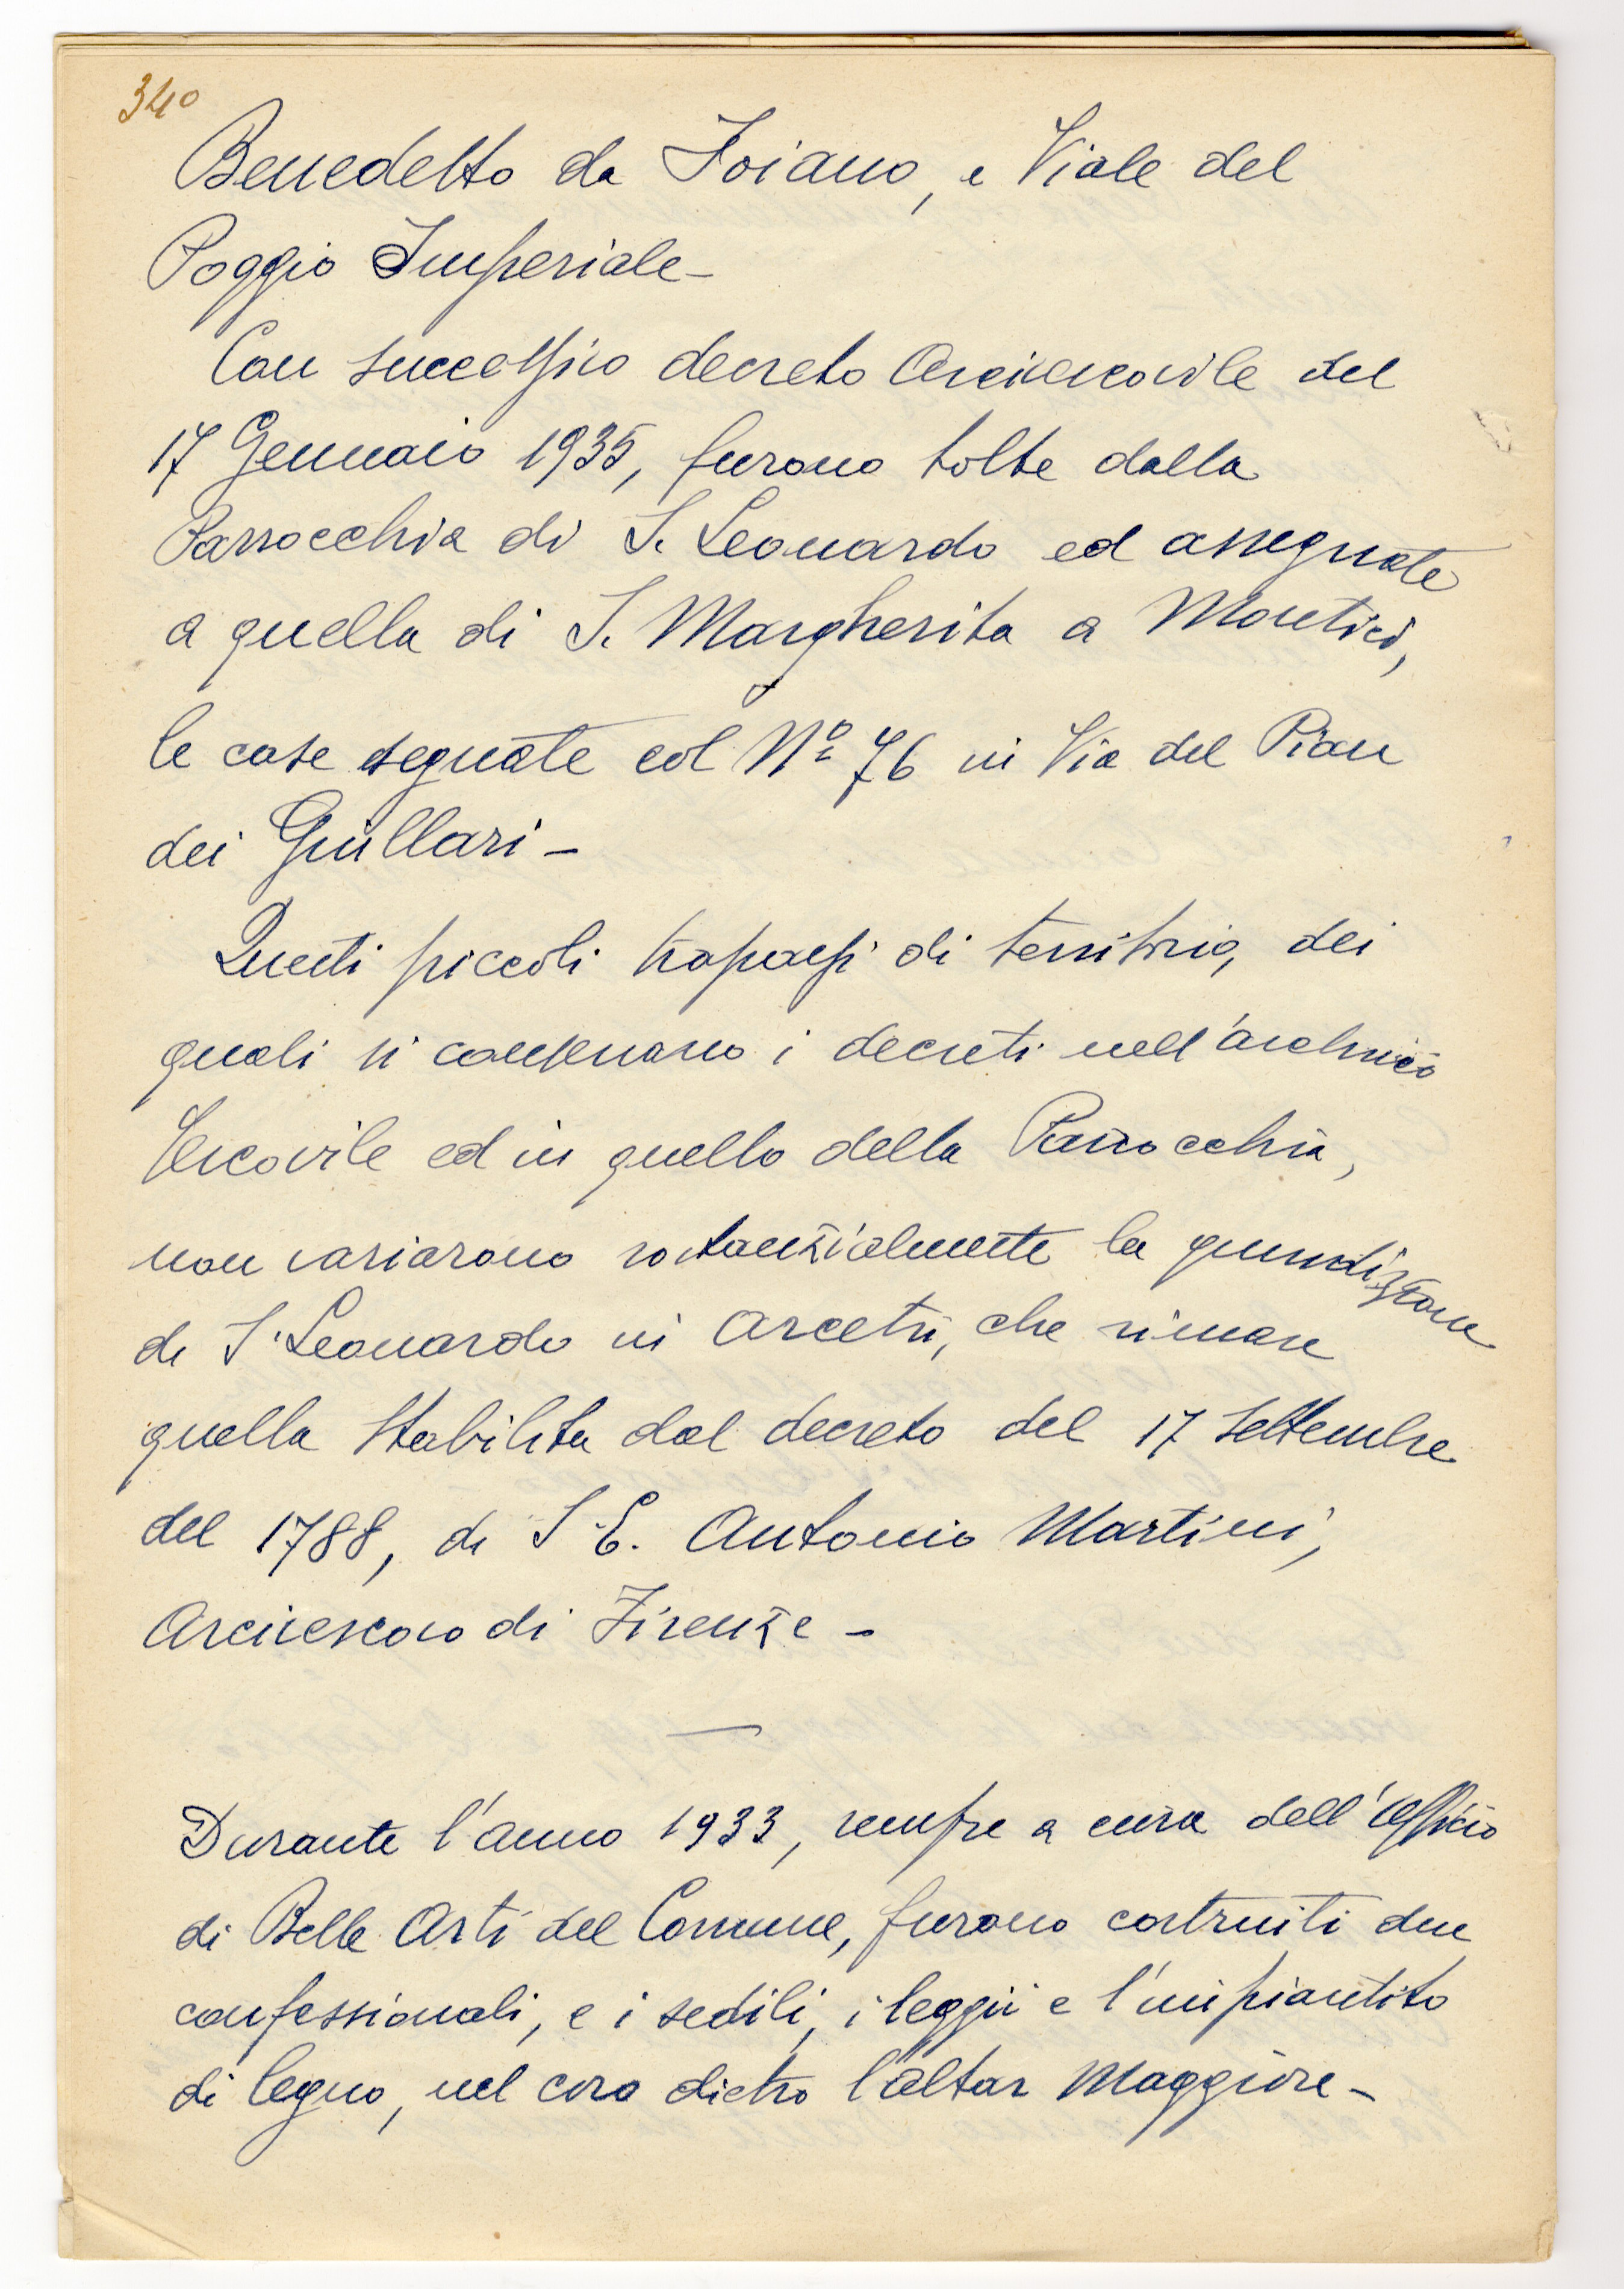 340
Benedetto da Foiano, e Viale del
Poggio Imperiale -
Con successivo decreto Arcivescovile del
17 Gennaio 1935, furono tolte dalla
Parrocchia di S. Leonardo ed assegnate
a quella di S. Margherita a Montici,
le case segnate col Nº 76 in Via del Pian
dei Giullari -
Questi piccoli trapassi di territorio, dei
quali si conservano i decreti nell'archivio
Vescovile ed in quello della Parrocchia,
non variarono sostanzialmente la giurisdizione
di S. Leonardo in Arcetri, che rimase
quella stabilita dal decreto del 17 Settembre
del 1788, di S. E. Antonio Martini,
Arcivescovo di Firenze -
Durante l'anno 1933, sempre a cura dell'Ufficio
di Belle Arti del Comune, furono costruiti due
confessionali, e i sedili, i leggii e l'impiantito
di legno, nel coro dietro l'altar Maggiore -